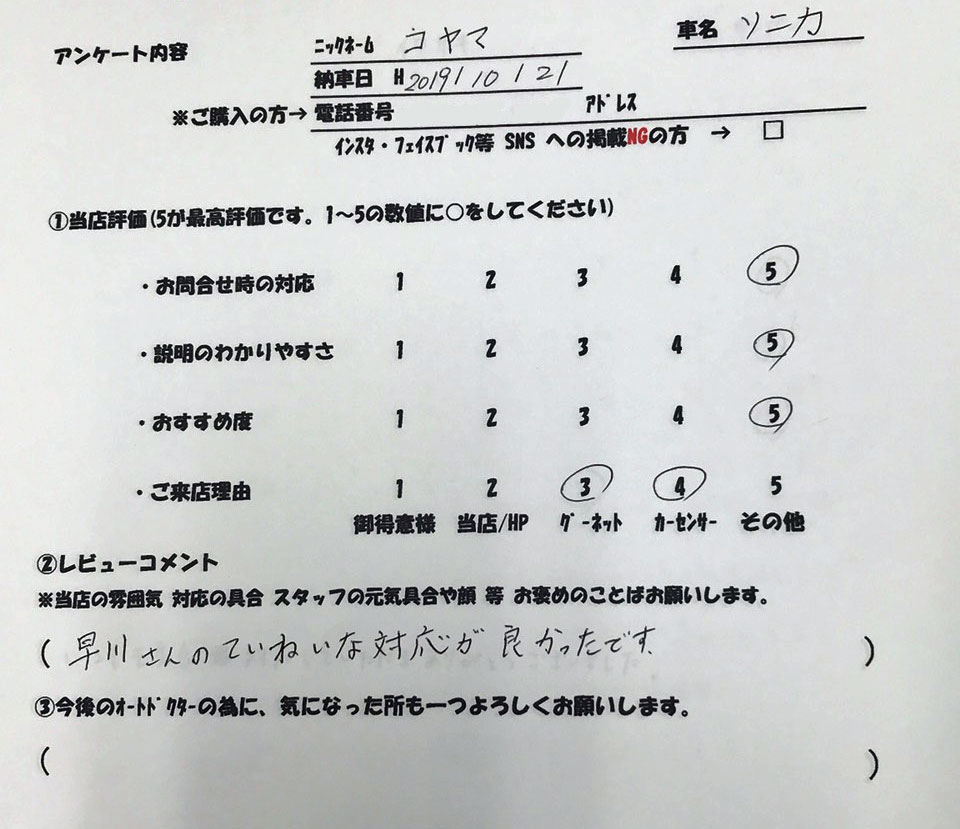 アンケート内容
ニックネーム コヤマ
車名 ソニカ
納車日 H 2019/10/21
※ご購入の方→ 電話番号 アドレス
インスタ・フェイスブック等 SNS への掲載NGの方 → □
①当店評価(5が最高評価です。1～5の数値に○をしてください)
・お問合せ時の対応 1 2 3 4 5
・説明のわかりやすさ 1 2 3 4 5
・おすすめ度 1 2 3 4 5
・ご来店理由 1 2 3 4 5
御得意様 当店/HP グーネット カーセンサー その他
②レビューコメント
※当店の雰囲気 対応の具合 スタッフの元気具合や顔 等 お褒めのことばお願いします。
( 早川さんのていねいな対応が良かったです。 )
③今後のオートドクターの為に、気になった所も一つよろしくお願いします。
( )